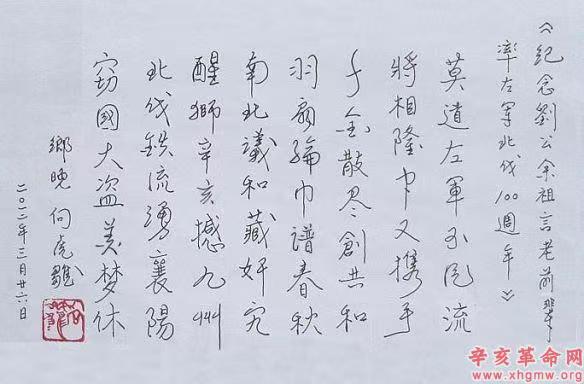 《纪念劉公余祖言老前輩
率左軍北伐100週年》
莫道左軍不风流
將相隆中又携手
千金散尽創共和
羽扇綸巾谱春秋
南北議和藏奸宄
醒獅辛亥撼九州
北伐鉄流湧襄陽
窃國大盗美梦休
鄉晚 向虎雛
二〇二二年三月廿六日
辛亥革命网
www.xhgmw.org